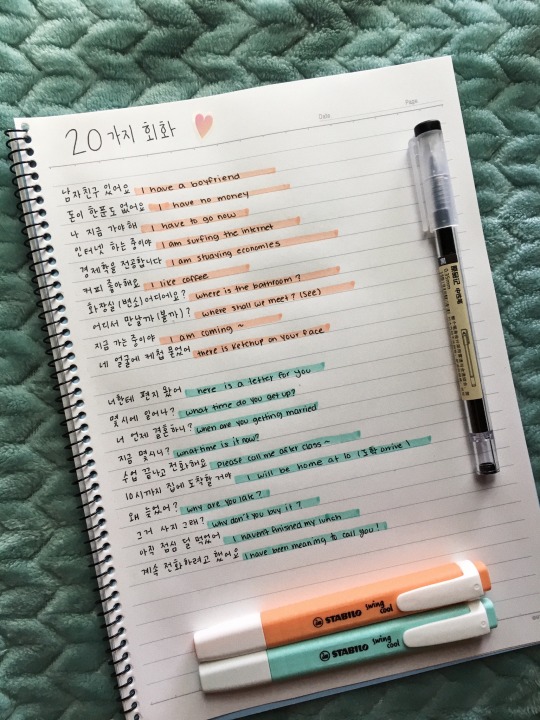 Date
Page
20가지 회화
남자친구 있어요 I have a boyfriend
돈이 한푼도 없어요 I have no money
나 지금 가야해 I have to go now
인터넷 하는 중이야 I am surfing the internet
경제학을 전공합니다 I am studying economies
커피 좋아해요 I like coffee
화장실(변소)어디에요? where is the bathroom?
어디서 만날까(볼까)? where shall we meet? (see)
지금 가는 중이야 I am coming ~
네 얼굴에 케첩 묻었어 there is ketchup on your face
너한테 편지 왔어 here is a letter for you
몇시에 일어나? what time do you get up?
너 언제 결혼하니? when are you getting married
지금 몇시니? what time is it now?
수업 끝나고 전화해요 please call me after class ~
10시까지 집에 도착할 거야 I will be home at 10 (도착 arrive)
왜 늦었어? why are you late?
그거 사지 그래? why don't you buy it?
아직 점심 덜 먹었어 I havent finished my lunch
계속 전화하려고 했어요 I have been meaning to call you!
STABILO swing cool
STABILO swing cool